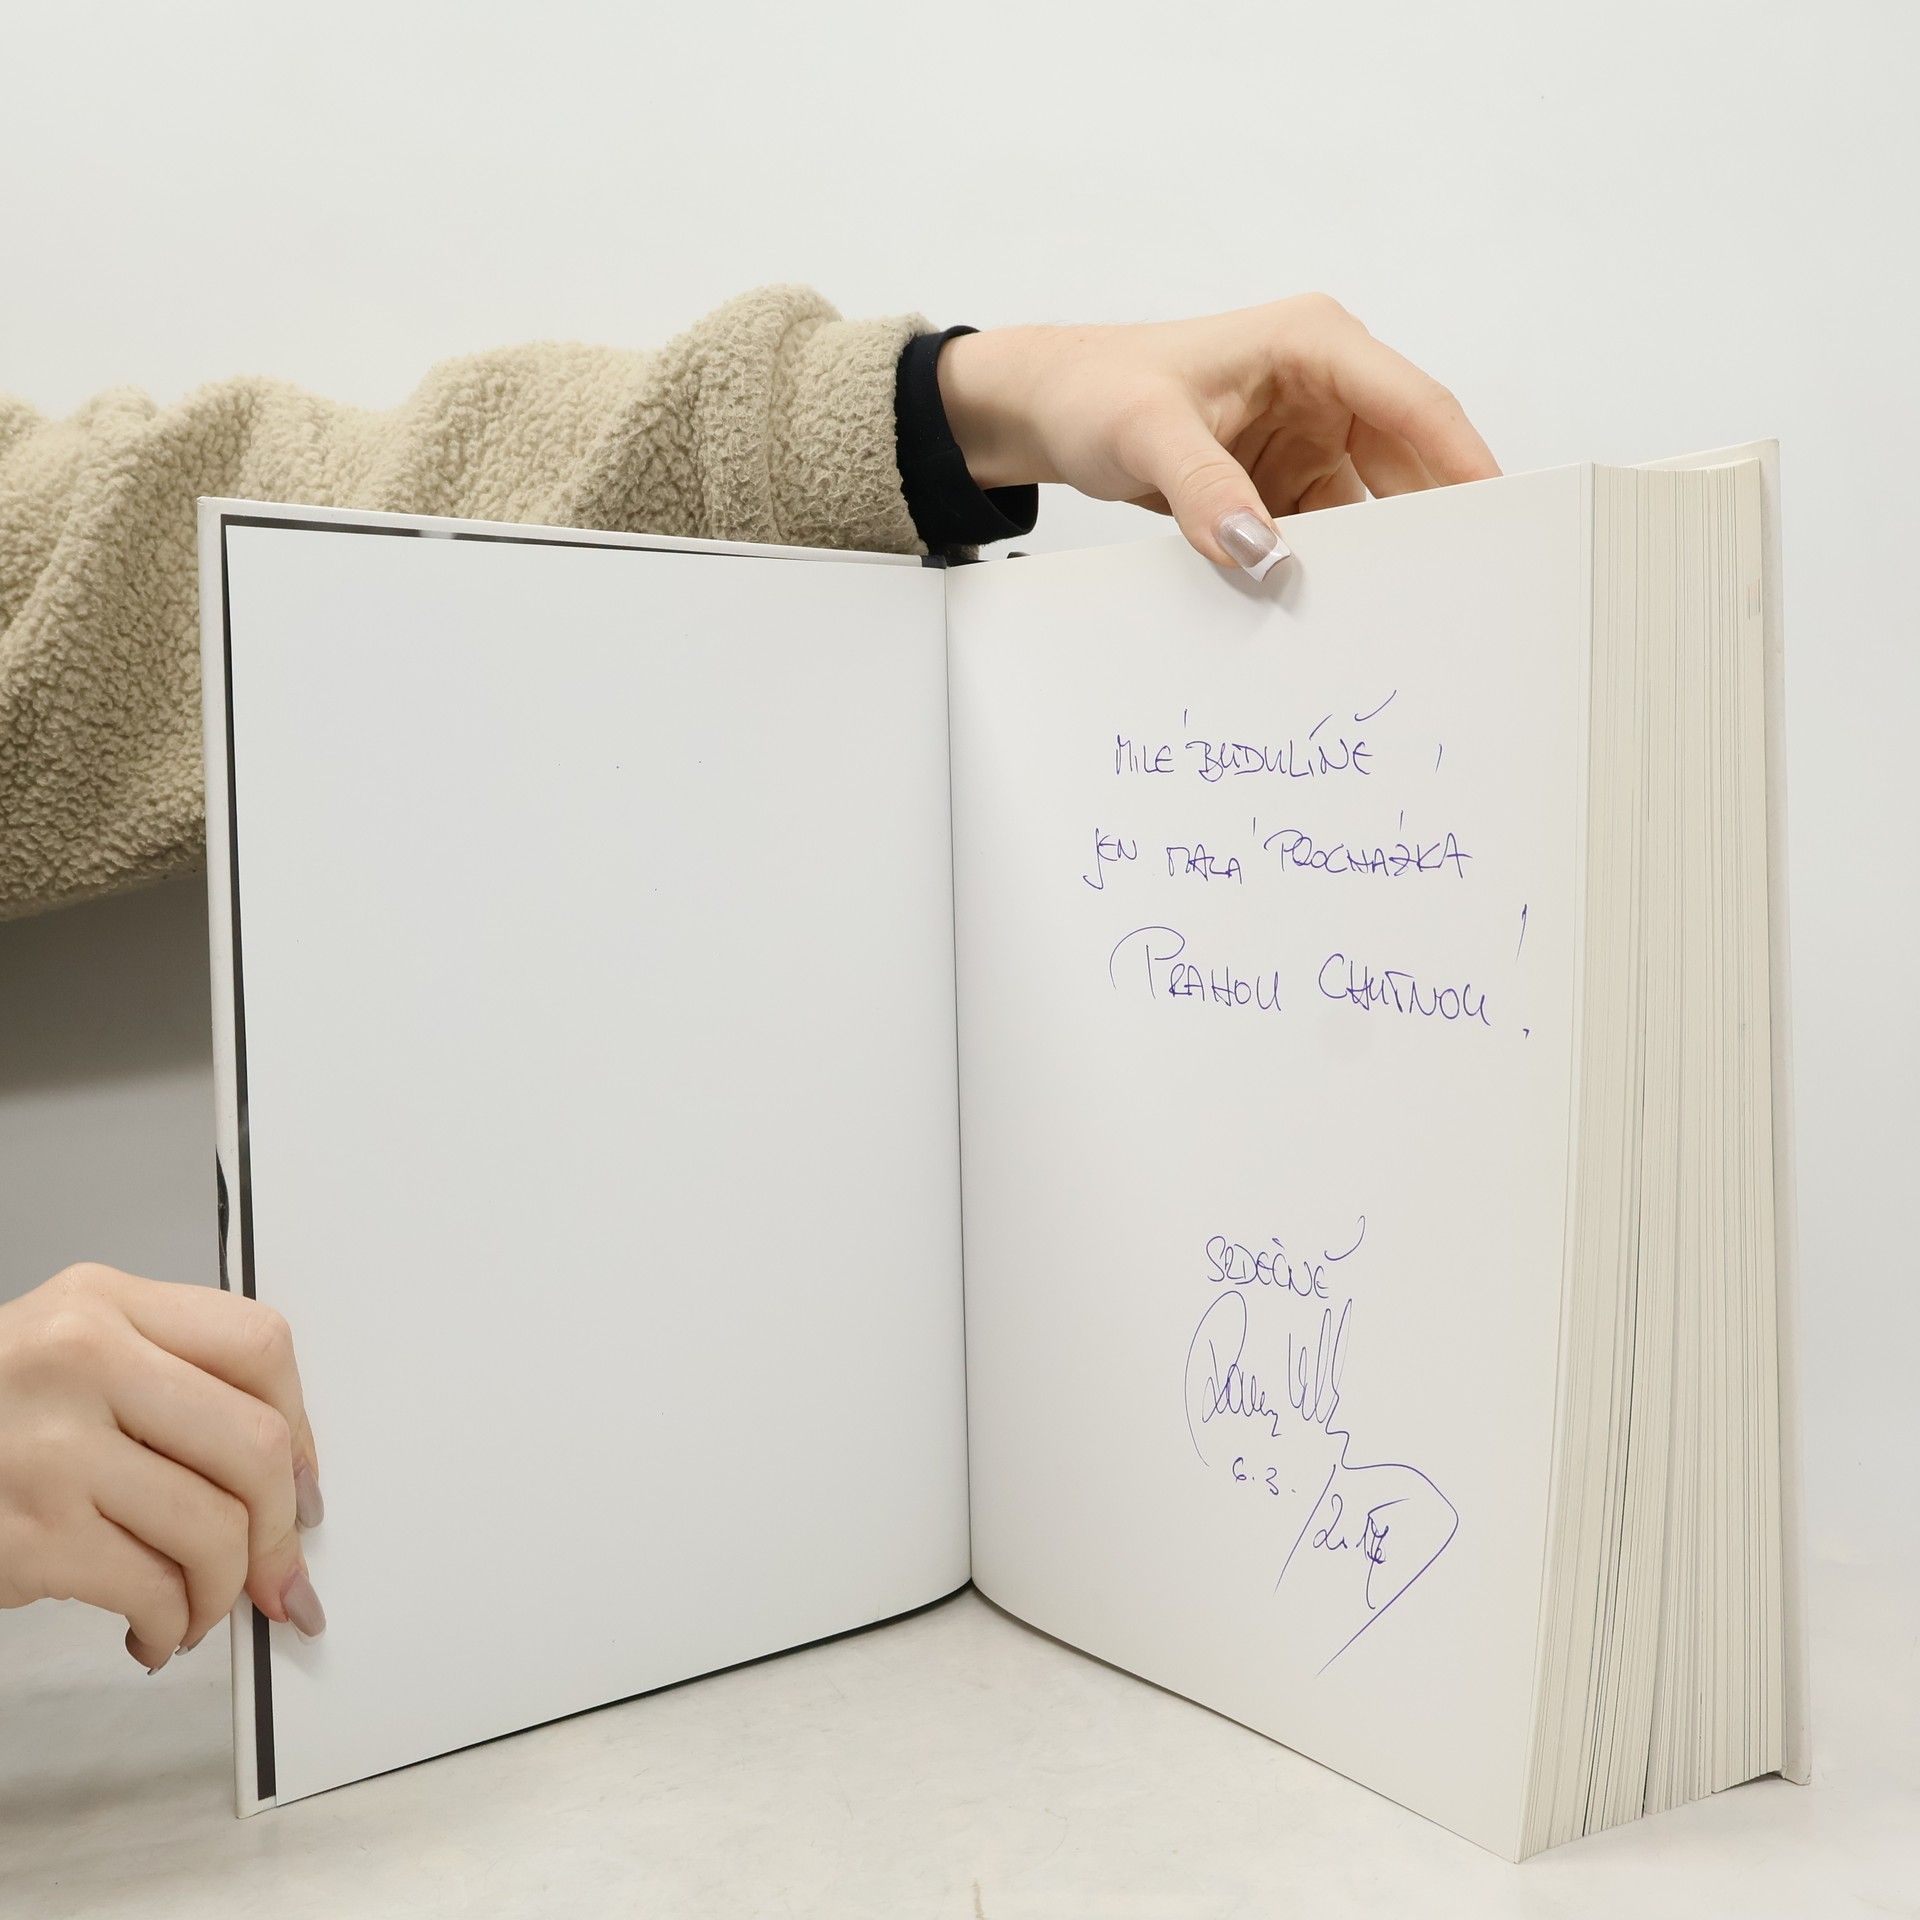 MILÉ BUDULÍNĚ,
JEN MALÁ PROCHÁZKA
PRAHOU CHUTNOU!
SRDEČNĚ
6.3.